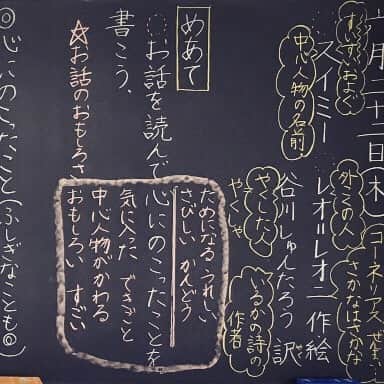 月二十二日(木)
コーネリアス
さかなはさかな
すいすいおよぐ
スイミー
外こくの人
レオ=レオニ 作 絵
中心人物の名前
谷川しゅんたろう 訳
やくした人
やくしゃ
いるかの詩の
作者
めあて
お話を読んで心にのこったことを
書こう。
☆お話のおもしろさ
ためになる うれしい
さびしい かんどう
気に入った できごと
中心人物がかわる
おもしろい すごい
◎心にのこったこと(ふしぎなことも◎)